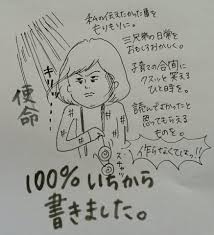 私の伝えたかった事を
たりもりに。
三兄弟の日常を
おもしろおかしく。
子育ての合間に
クスッと笑える
ひと時を。
読んでよかったと
思ってもらえる
ものを。
作らなくては…っ!!
使命
スチャッ
100%いちから
書きました。